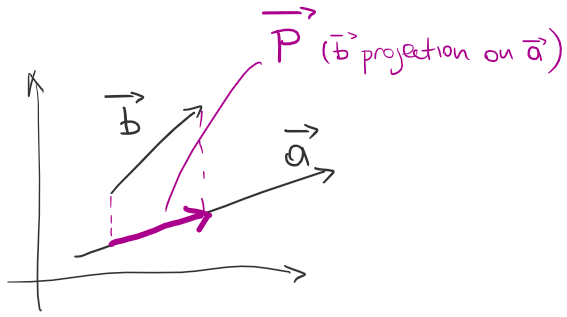 P⃗ (b⃗ projection on a⃗)
b⃗
a⃗